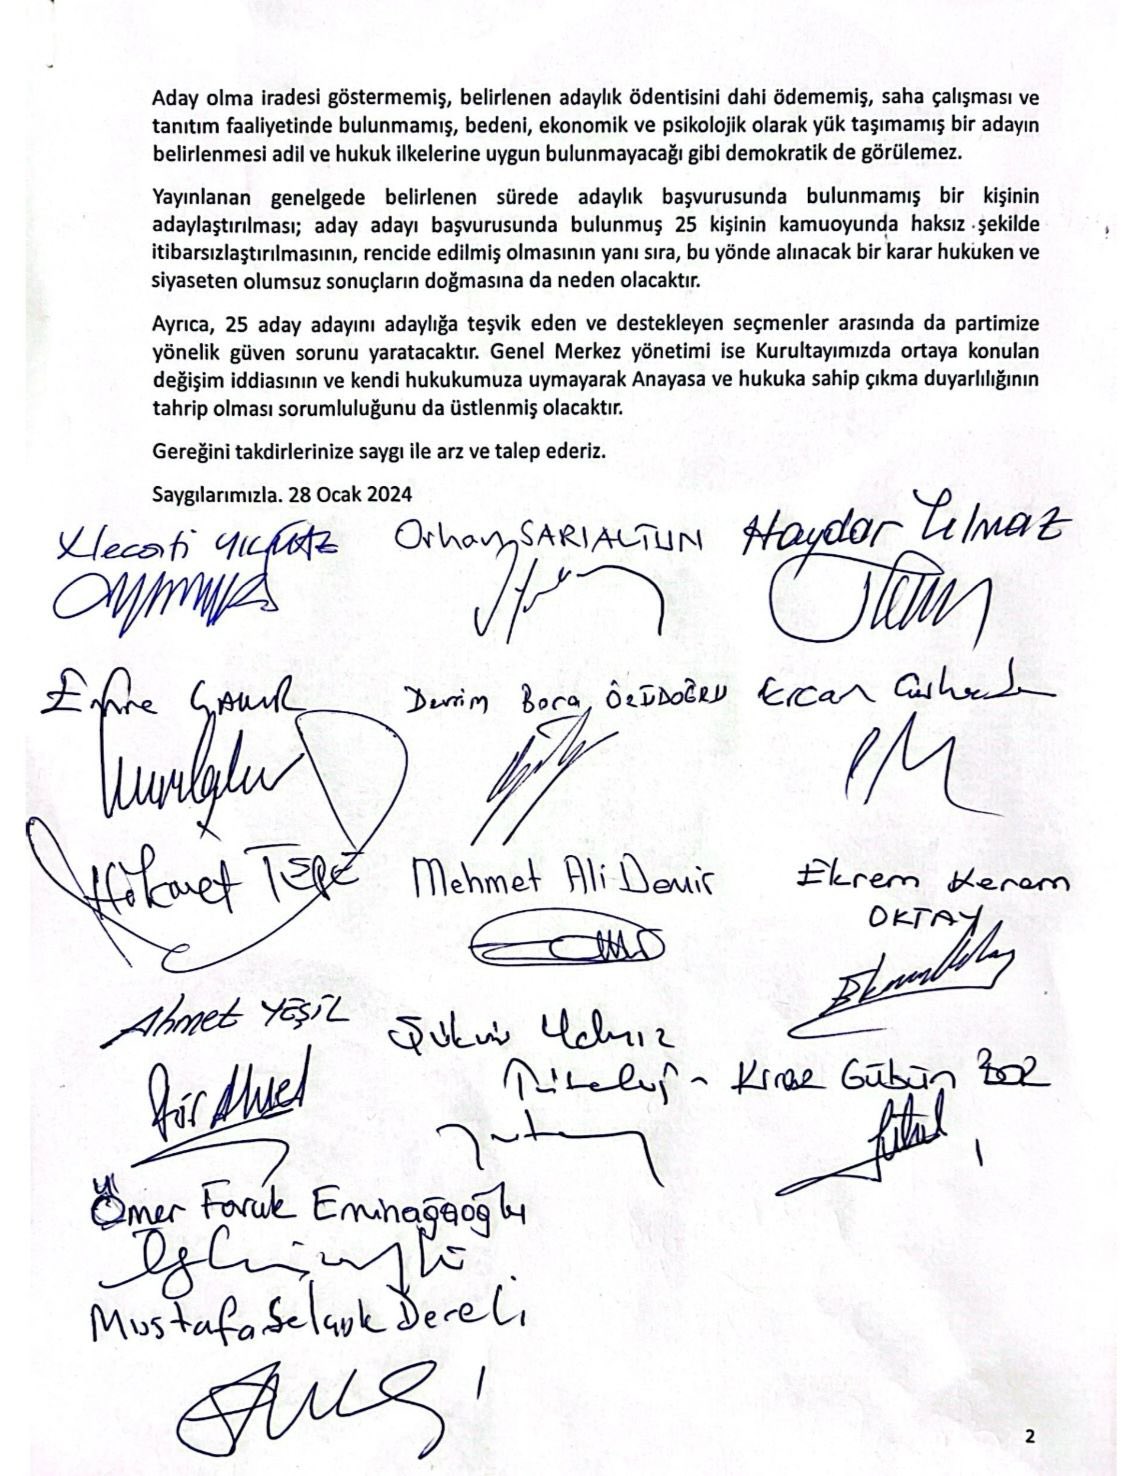 Aday olma iradesi göstermemiş, belirlenen adaylık ödentisini dahi ödememiş, saha çalışması ve
tanıtım faaliyetinde bulunmamış, bedeni, ekonomik ve psikolojik olarak yük taşımamış bir adayın
belirlenmesi adil ve hukuk ilkelerine uygun bulunmayacağı gibi demokratik de görülemez.
Yayınlanan genelgede belirlenen sürede adaylık başvurusunda bulunmamış bir kişinin
adaylaştırılması; aday adayı başvurusunda bulunmuş 25 kişinin kamuoyunda haksız şekilde
itibarsızlaştırılmasının, rencide edilmiş olmasının yanı sıra, bu yönde alınacak bir karar hukuken ve
siyaseten olumsuz sonuçların doğmasına da neden olacaktır.
Ayrıca, 25 aday adayını adaylığa teşvik eden ve destekleyen seçmenler arasında da partimize
yönelik güven sorunu yaratacaktır. Genel Merkez yönetimi ise Kurultayımızda ortaya konulan
değişim iddiasının ve kendi hukukumuza uymayarak Anayasa ve hukuka sahip çıkma duyarlılığının
tahrip olması sorumluluğunu da üstlenmiş olacaktır.
Gereğini takdirlerinize saygı ile arz ve talep ederiz.
Saygılarımızla. 28 Ocak 2024
Necati Orhan SARIALTUN Haydar Yılmaz
Emre Devrim Bora ÖZÜDOĞRU Ercan
Hikmet TEPE Mehmet Ali Demir Ekrem Kerem
OKTAY
Ahmet YEŞİL Şükrü
Gübün
Ömer Faruk Eminağaoğlu
Mustafa Selçuk Dereli
2